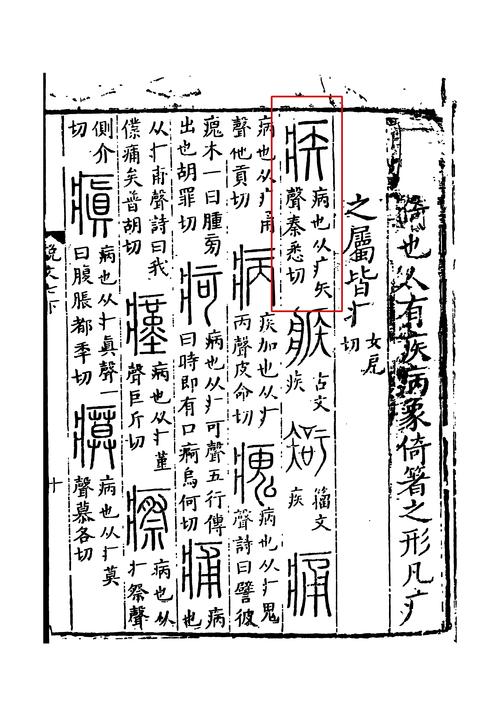 倚也人有疾病象倚箸之形凡疒
之屬皆疒女戹切
疾病也从疒矢聲秦悉切古文疾籒文疾痛
病也从疒甬聲他貢切病疾加也从疒丙聲皮命切瘣病也从疒鬼聲詩曰譬彼
瘣木一曰腫旁出也胡罪切疴病也从疒可聲五行傳曰時即有口痾烏何切痡病也
从疒甫聲詩曰我僕痡矣普胡切瘽病也从疒堇聲巨斤切瘵病也从疒祭聲
側介切瘨病也从疒眞聲一曰腹脹都季切瘼病也从疒莫聲慕各切
說文七下
十